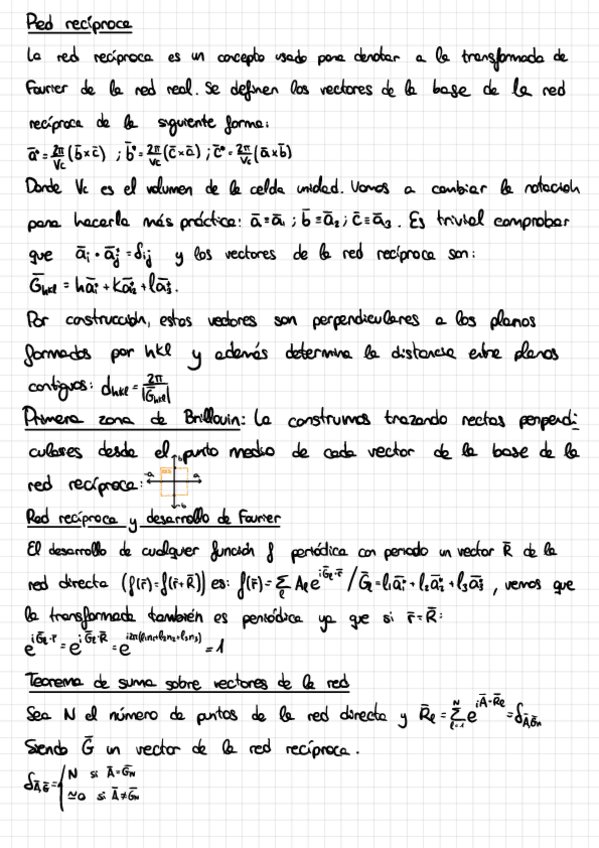 Red recíproca
La red recíproca es un concepto usado para denotar a la transformada de
Fourier de la red real. Se definen los vectores de la base de la red
recíproca de la siguiente forma:
ā* = 2π/Vc (b̄×c̄) ; b̄* = 2π/Vc (c̄×ā) ; c̄* = 2π/Vc (ā×b̄)
Donde Vc es el volumen de la celda unidad. Vamos a cambiar la notación
para hacerla más práctica: ā≡ā₁ ; b̄≡ā₂ ; c̄≡ā₃. Es trivial comprobar
que āᵢ · āⱼ* = δij y los vectores de la red recíproca son:
Ḡhkl = hā₁* + kā₂* + lā₃*.
Por construcción, estos vectores son perpendiculares a los planos
formados por hkl y además determina la distancia entre planos
contiguos: dhkl = 2π/|Ḡhkl|
Primera zona de Brillouin: La construimos trazando rectas perpendi-
culares desde el punto medio de cada vector de la base de la
red recíproca: -a a b -b
Red recíproca y desarrollo de Fourier
El desarrollo de cualquier función f periódica con periodo un vector R̄ de la
red directa (f(r̄)=f(r̄+R̄)) es: f(r̄) = Σₗ Aₗ e^{iḠₗ·r̄} / Ḡₗ = l₁ā₁* + l₂ā₂* + l₃ā₃*, vemos que
la transformada también es periódica ya que si r̄=R̄:
e^{iḠₗ·r̄} = e^{iḠₗ·R̄} = e^{i2π(l₁n₁+l₂n₂+l₃n₃)} = 1
Teorema de suma sobre vectores de la red
Sea N el número de puntos de la red directa y R̄ₗ = Σ_{l=1}^{N} e^{iĀ·R̄ₗ} = δ_{Ā,Ḡn}
Siendo Ḡ un vector de la red recíproca.
δ_{Ā,Ḡ} = { N si Ā=Ḡn
≃0 si Ā≠Ḡn